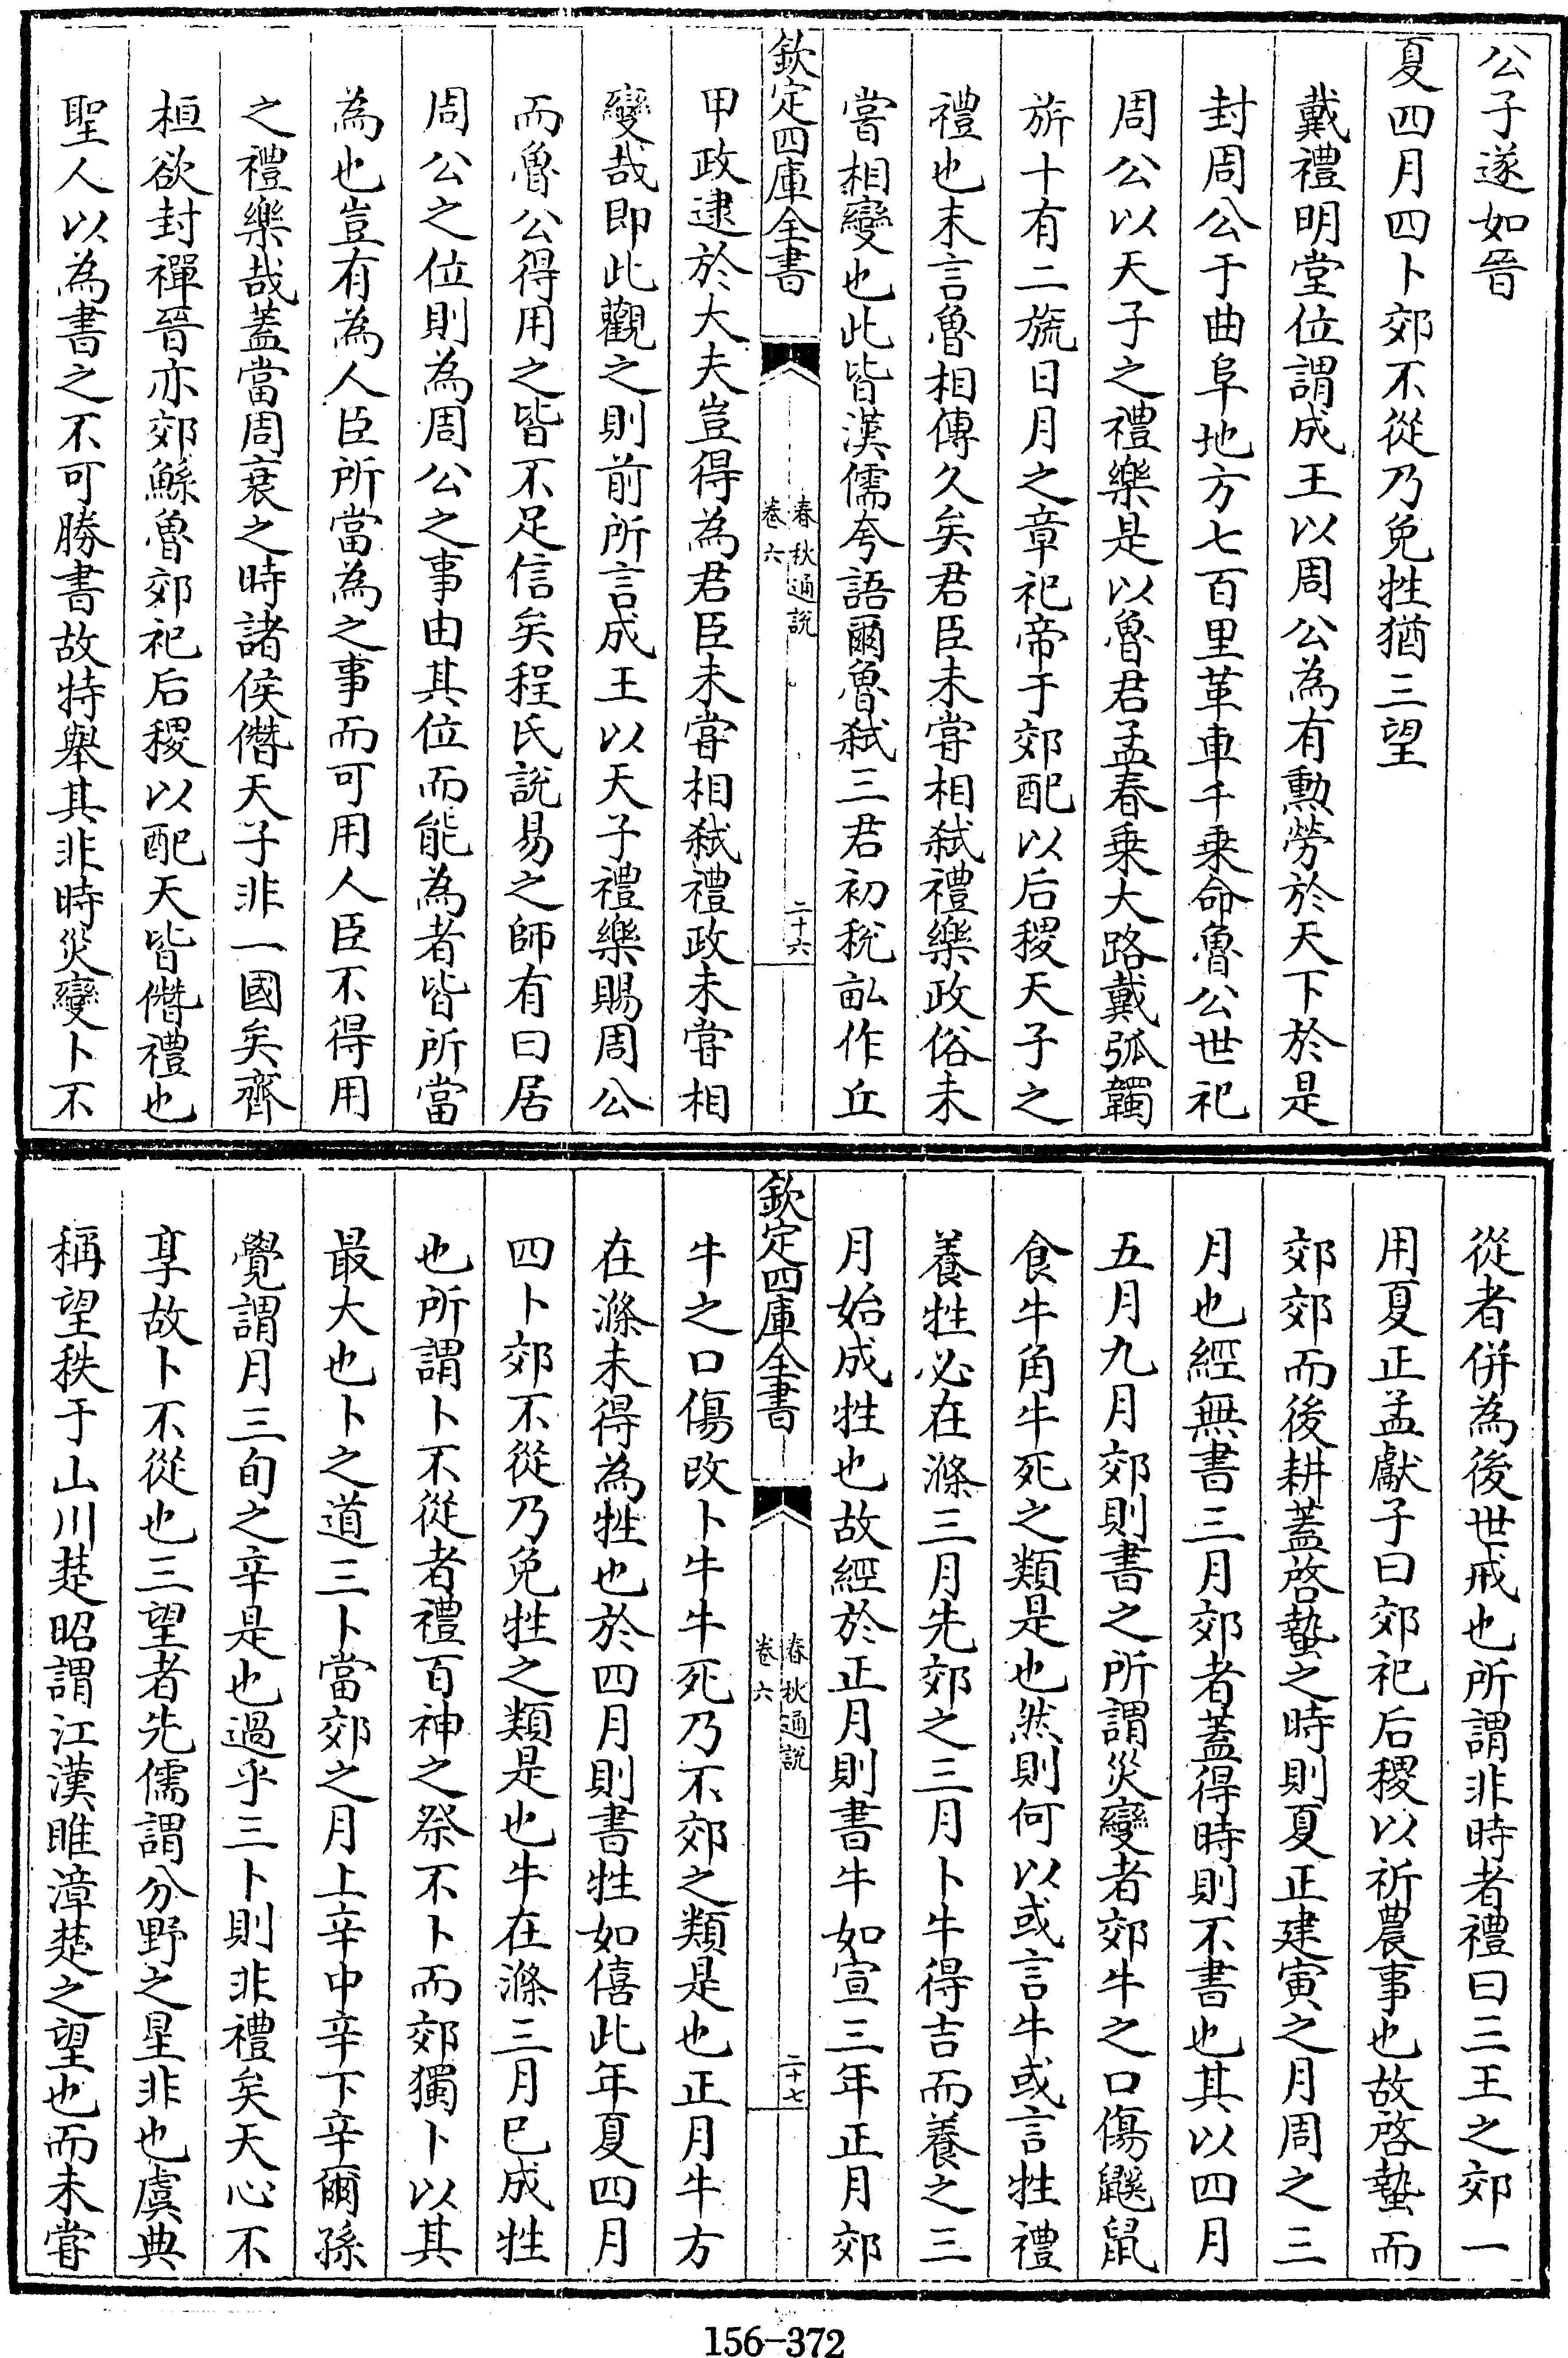 公子遂如晉
夏四月四卜郊不從乃免牲猶三望
戴禮明堂位謂成王以周公為有勲勞於天下於是
封周公于曲阜地方七百里革車千乗命魯公世祀
周公以天子之禮樂是以魯君孟春乗大路戴弧韣
旂十有二旒日月之章祀帝于郊配以后稷天子之
禮也末言魯相傳久矣君臣未嘗相弑禮樂政俗未
嘗相變也此皆漢儒夸語爾魯弑三君初稅畝作丘
欽定四庫全書
春秋通說
卷六
二十六
甲政逮於大夫豈得為君臣未嘗相弑禮政未嘗相
變哉即此觀之則前所言成王以天子禮樂賜周公
而魯公得用之皆不足信矣程氏說易之師有曰居
周公之位則為周公之事由其位而能為者皆所當
為也豈有為人臣所當為之事而可用人臣不得用
之禮樂哉蓋當周衰之時諸侯僭天子非一國矣齊
桓欲封禪晉亦郊鯀魯郊祀后稷以配天皆僭禮也
聖人以為書之不可勝書故特舉其非時災變卜不
從者併為後世戒也所謂非時者禮曰三王之郊一
用夏正孟獻子曰郊祀后稷以祈農事也故啓蟄而
郊郊而後耕蓋啓蟄之時則夏正建寅之月周之三
月也經無書三月郊者蓋得時則不書也其以四月
五月九月郊則書之所謂災變者郊牛之口傷鼷鼠
食牛角牛死之類是也然則何以或言牛或言牲禮
養牲必在滌三月先郊之三月卜牛得吉而養之三
月始成牲也故經於正月則書牛如宣三年正月郊
欽定四庫全書
春秋通說
卷六
二十七
牛之口傷改卜牛牛死乃不郊之類是也正月牛方
在滌未得為牲也於四月則書牲如僖此年夏四月
四卜郊不從乃免牲之類是也牛在滌三月已成牲
也所謂卜不從者禮百神之祭不卜而郊獨卜以其
最大也卜之道三卜當郊之月上辛中辛下辛爾孫
覺謂月三旬之辛是也過乎三卜則非禮矣天心不
享故卜不從也三望者先儒謂分野之星非也虞典
稱望秩于山川楚昭謂江漢睢漳楚之望也而未嘗
156-372